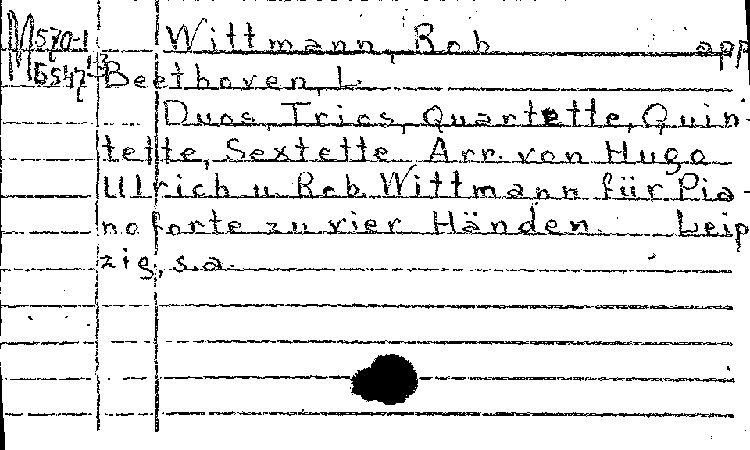 M570-1 Wittmann, Rob. app
M5547-3 Beethoven, L.
Duos, Trios, Quartette, Quin-
tette, Sextette. Arr. von Hugo
Ulrich u. Rob. Wittmann für Pia-
noforte zu vier Händen. Leip
zig, s.a.